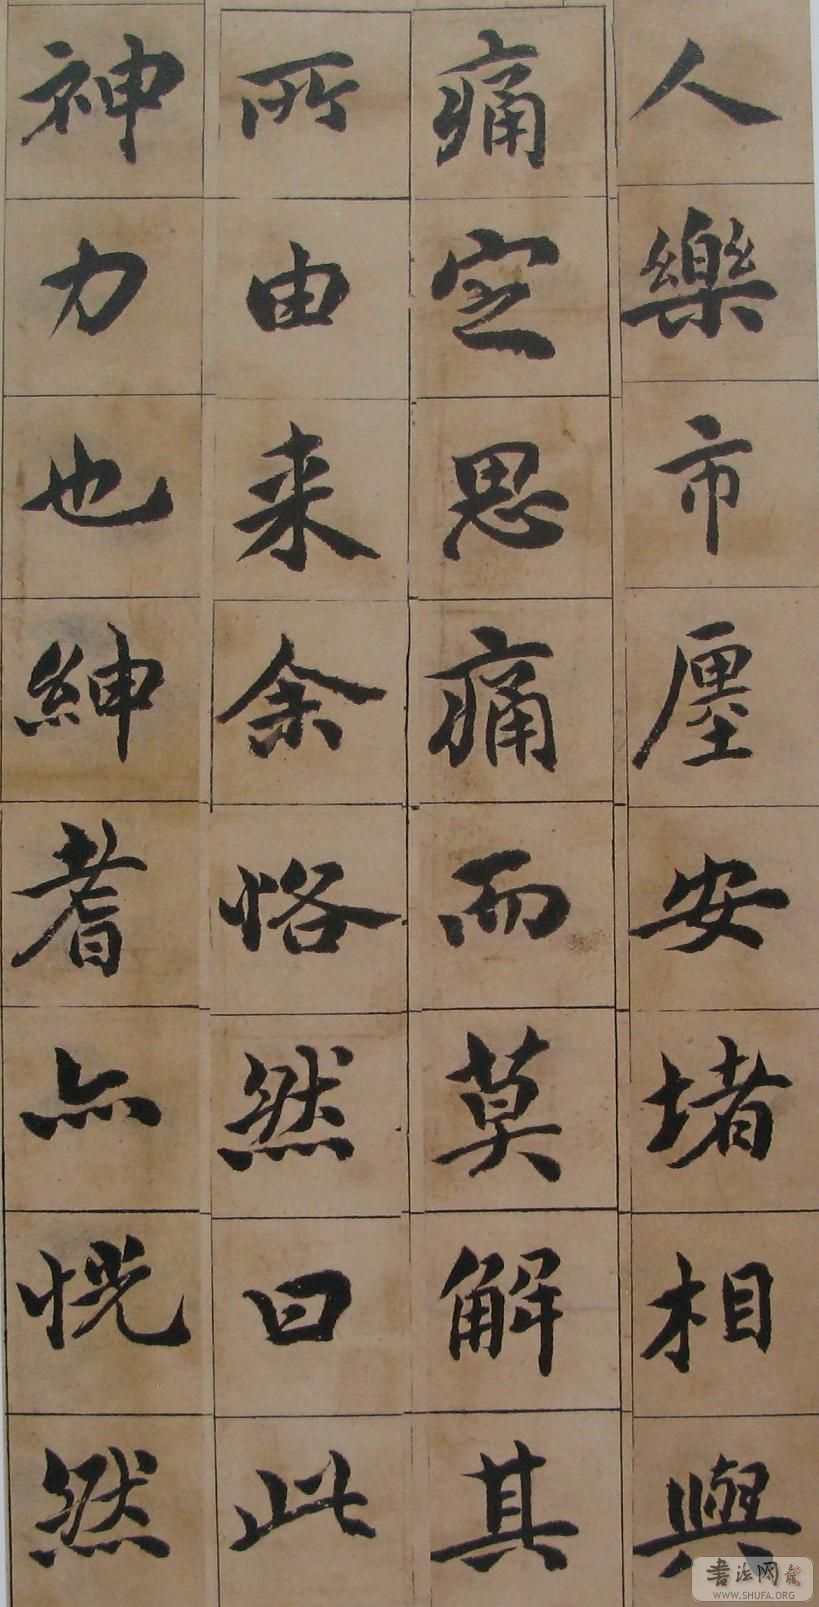 人樂市廛安堵相與
痛定思痛而莫解其
所由来余恪然曰此
神力也紳耆亦恍然
書法网
WWW.SHUFA.ORG